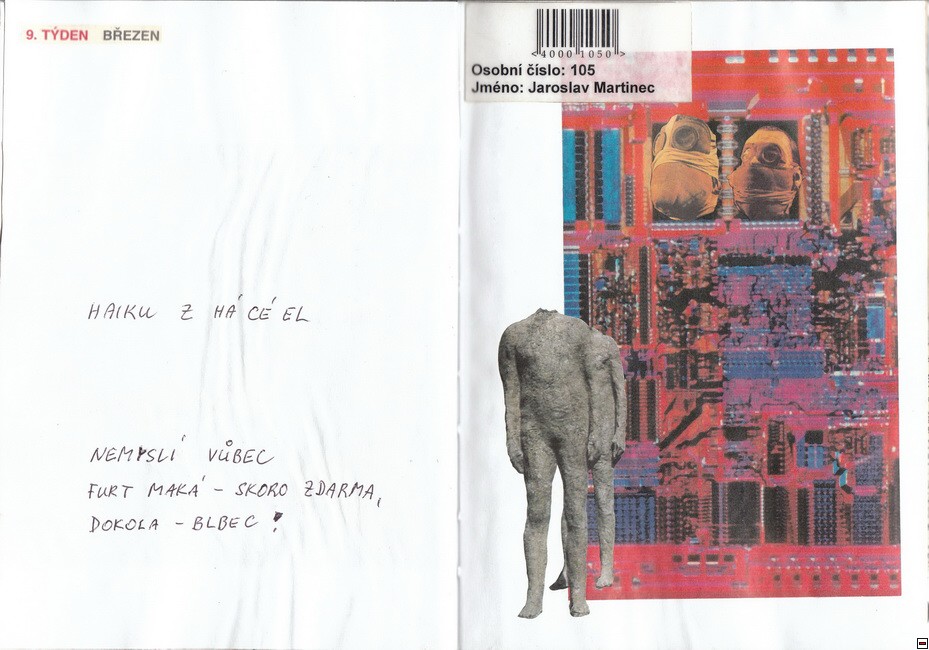 9. TÝDEN BŘEZEN
HAIKU Z HÁCÉEL
NEMYSLÍ VŮBEC
FURT MAKÁ – SKORO ZDARMA,
DOKOLA – BLBEC!
<4000 1050>
Osobní číslo: 105
Jméno: Jaroslav Martinec